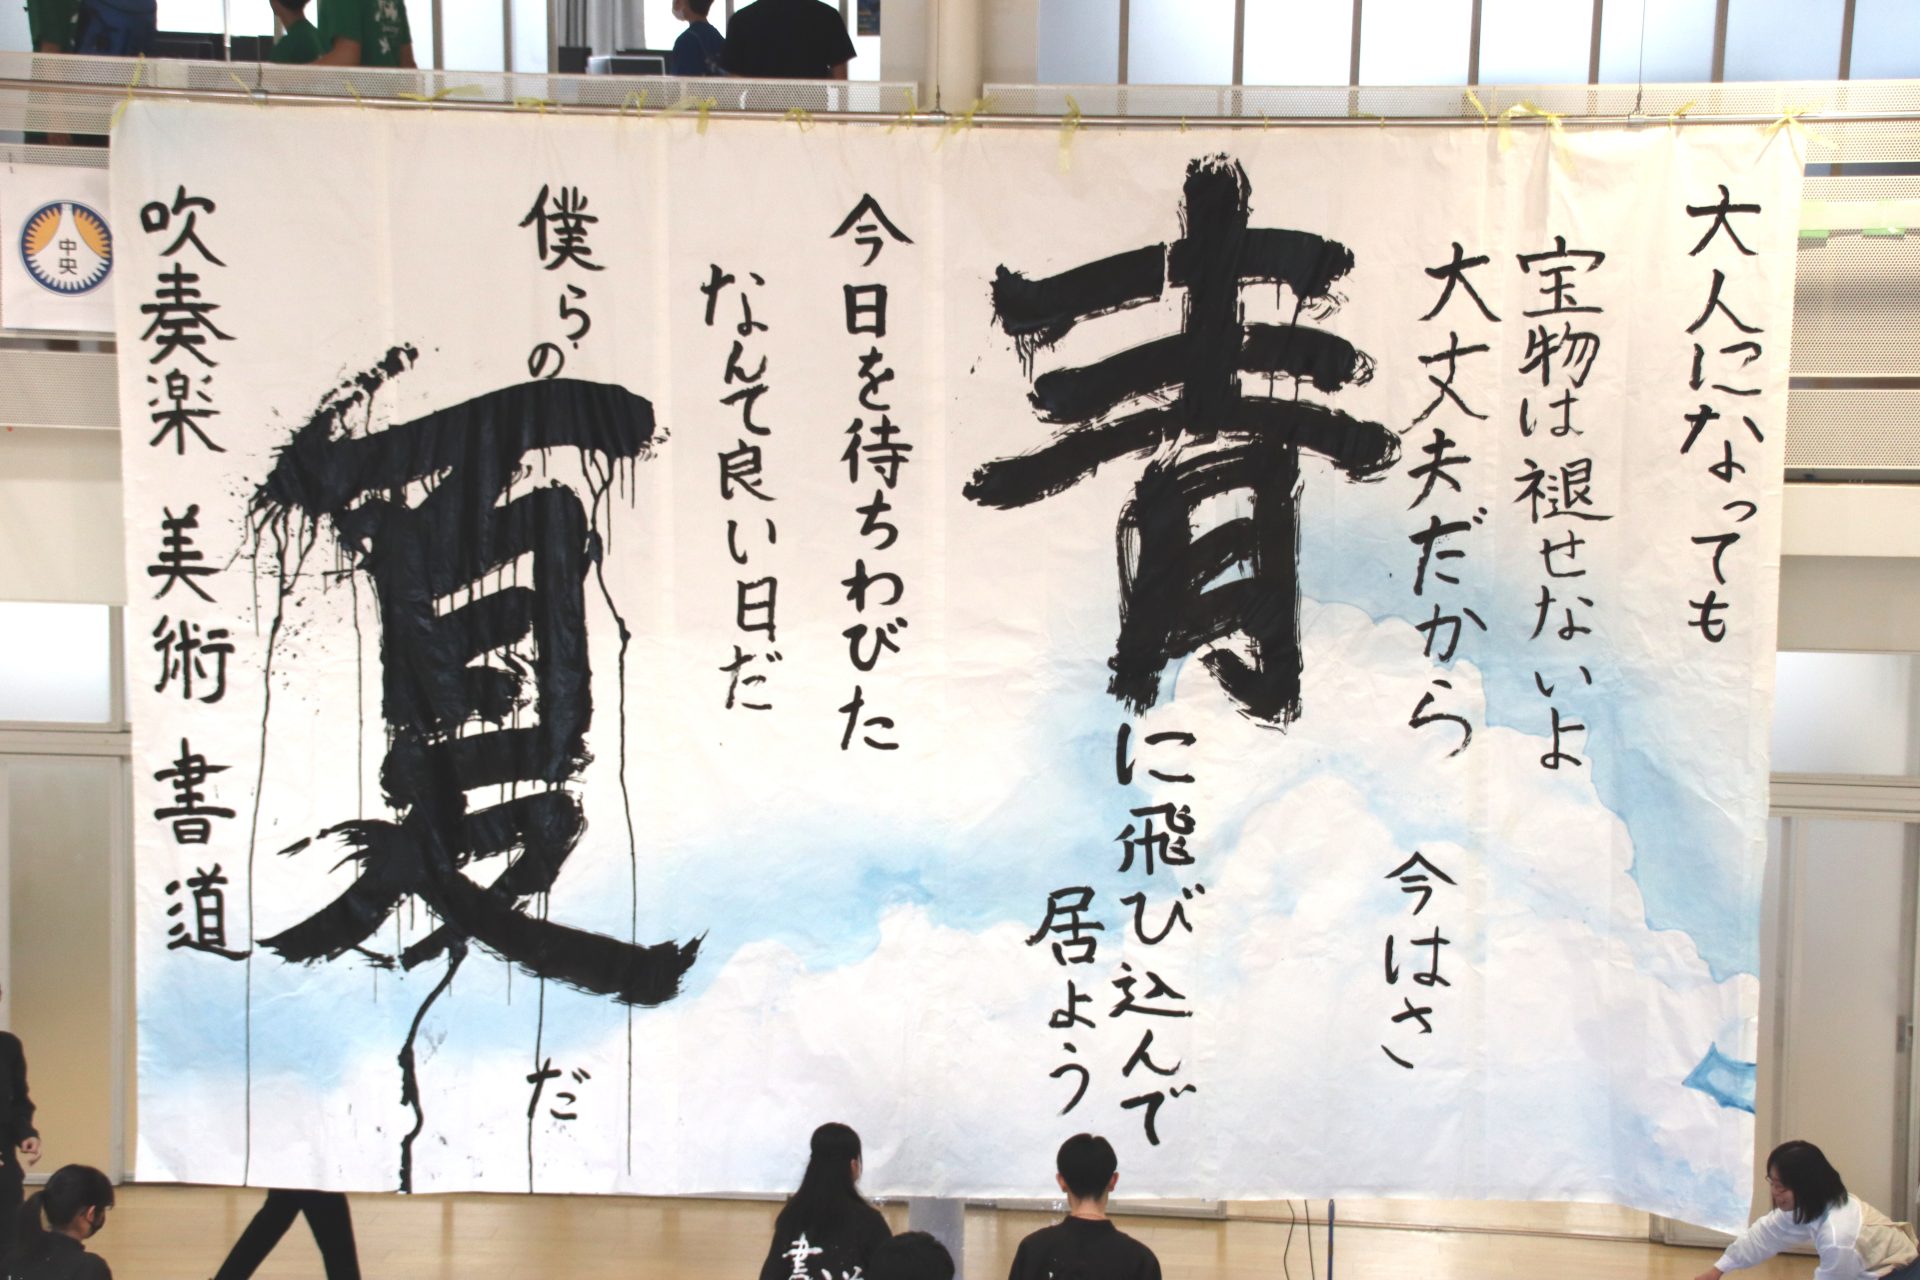 大人になっても
宝物は褪せないよ
大丈夫だから
今はさ
青に飛び込んで
居よう
今日を待ちわびた
なんて良い日だ
僕らの
夏だ
吹奏楽 美術 書道
中央
書道